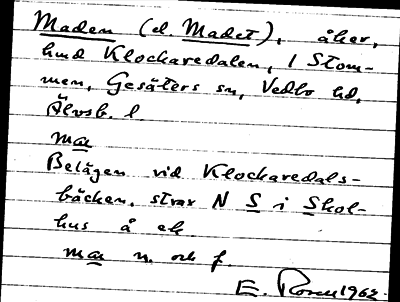 Maden (el. Madet), åker,
hmd Klockaredalen, 1 Stom-
men, Gesäters sn, Vedbo hd,
Älvsb. l.
ma
Belägen vid Klockaredals-
bäcken, strax N S i Skol-
hus å ek
ma n. och f.
E. Rosell 1962.